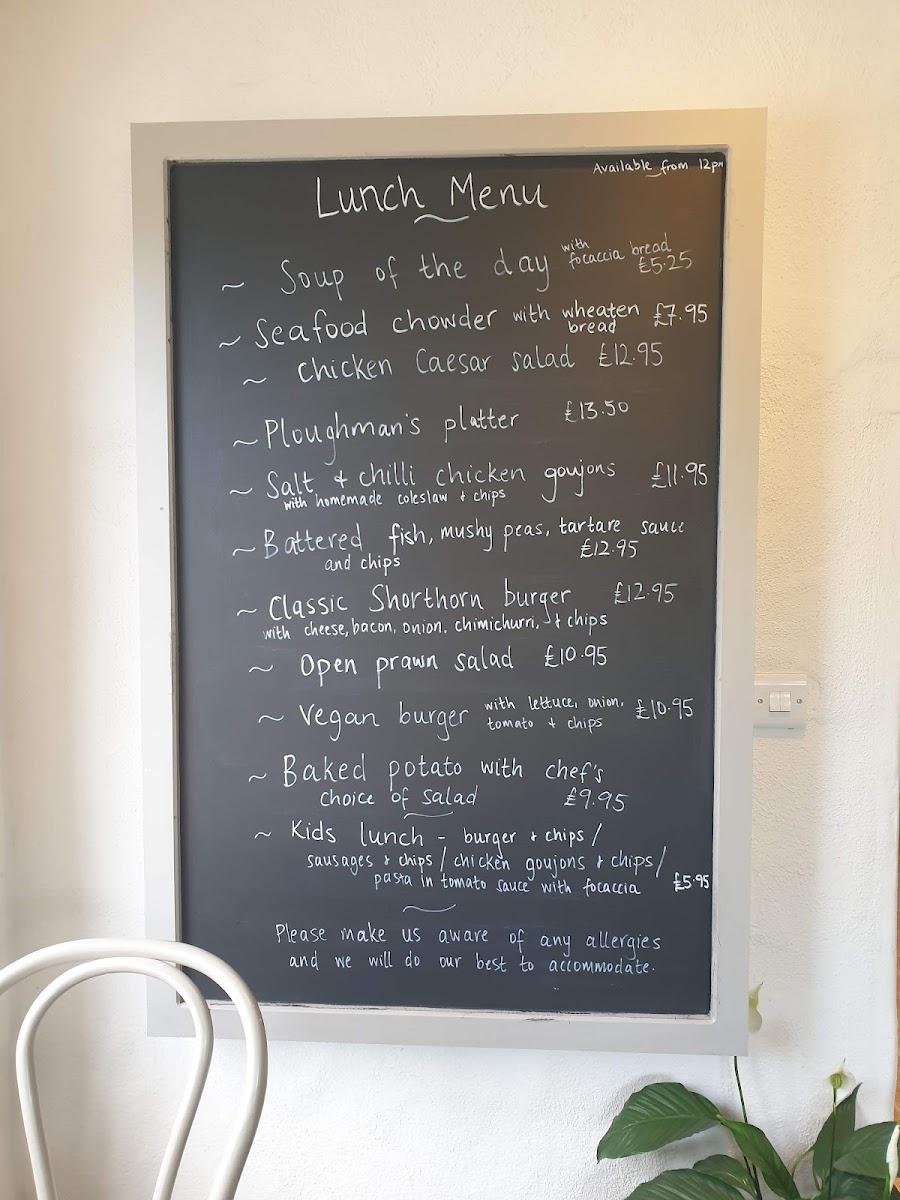 Available from 12pm
Lunch Menu
~ Soup of the day with focaccia bread £5.25
~ Seafood chowder with wheaten bread £7.95
~ Chicken Caesar salad £12.95
~ Ploughman's platter £13.50
~ Salt & chilli chicken goujons £11.95
with homemade coleslaw & chips
~ Battered fish, mushy peas, tartare sauce
and chips £12.95
~ Classic Shorthorn burger £12.95
with cheese, bacon, onion, chimichurri, & chips
~ Open prawn salad £10.95
~ Vegan burger with lettuce, onion, tomato & chips £10.95
~ Baked potato with chef's
choice of salad £9.95
~ Kids lunch - burger & chips /
sausages & chips / chicken goujons & chips /
pasta in tomato sauce with focaccia £5.95
~
Please make us aware of any allergies
and we will do our best to accommodate.